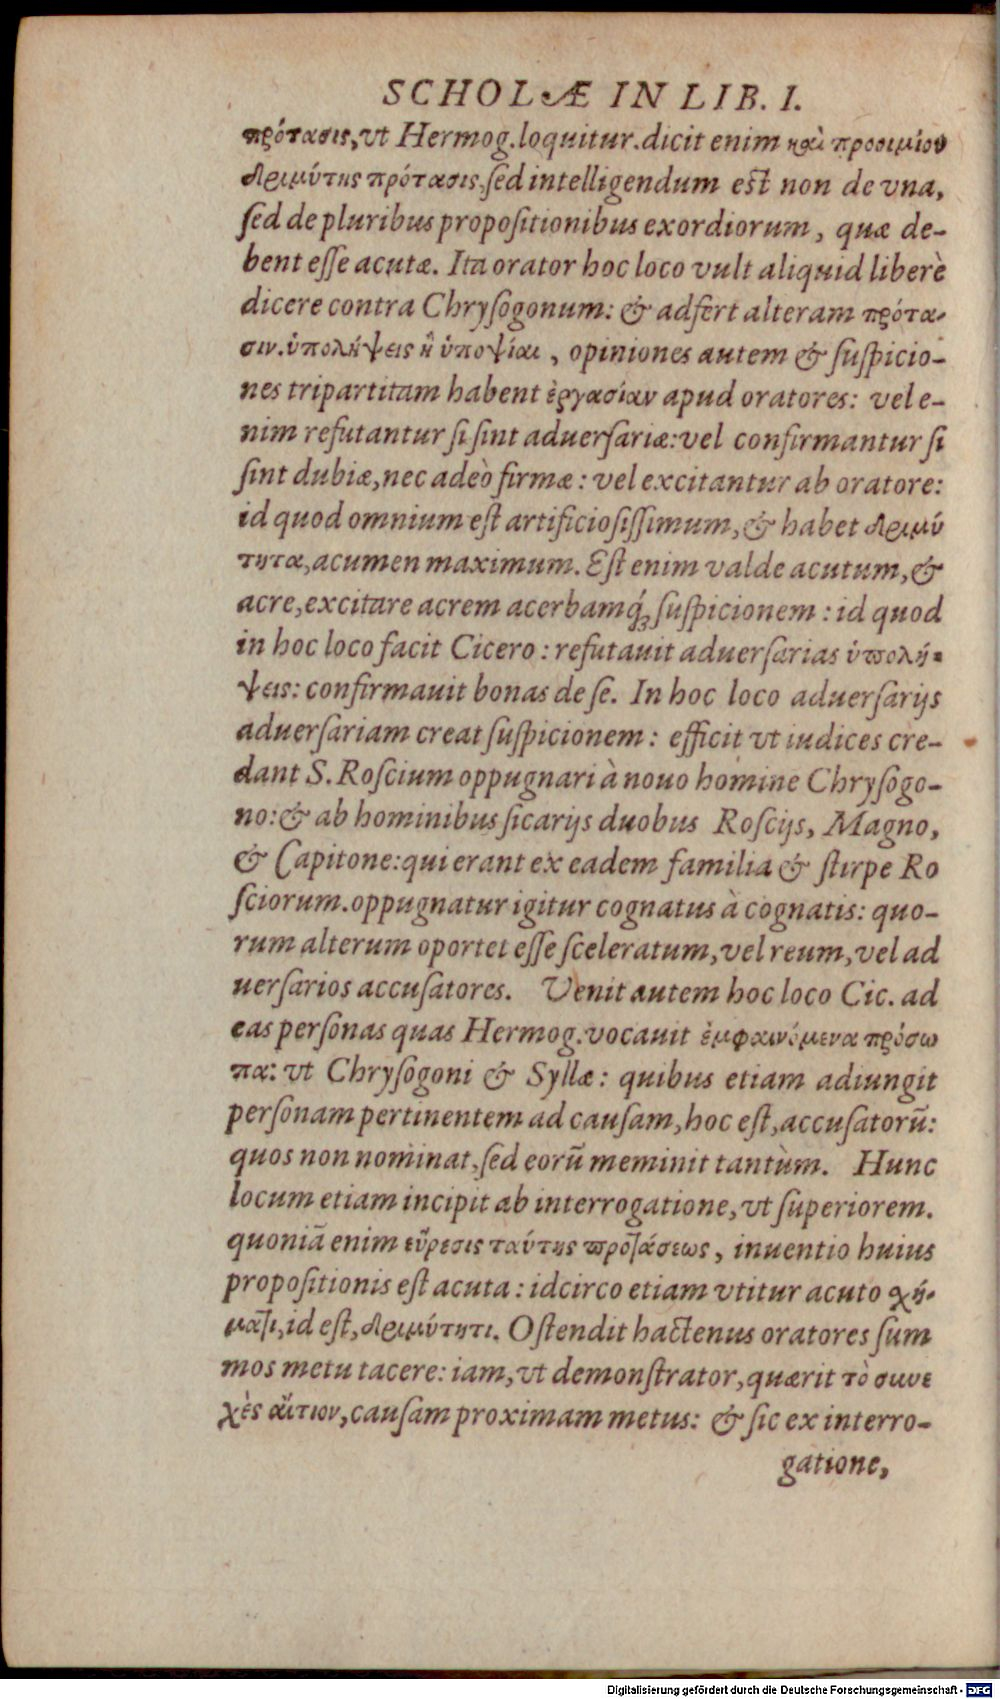 SCHOLÆ IN LIB. I.
πρότασις, vt Hermog. loquitur. dicit enim καὶ προοιμίου
δριμύτης πρότασις, sed intelligendum est non de vna,
sed de pluribus propositionibus exordiorum, quæ de-
bent esse acutæ. Ita orator hoc loco vult aliquid liberè
dicere contra Chrysogonum: & adfert alteram πρότα-
σιν. ὑπολήψεις ἢ ὑποψίαι, opiniones autem & suspicio-
nes tripartitam habent ἐργασίαν apud oratores: vel e-
nim refutantur si sint aduersariæ: vel confirmantur si
sint dubiæ, nec adeò firmæ: vel excitantur ab oratore:
id quod omnium est artificiosissimum, & habet δριμύ
τητα, acumen maximum. Est enim valde acutum, &
acre, excitare acrem acerbamq́; suspicionem: id quod
in hoc loco facit Cicero: refutauit aduersarias ὑπολή-
ψεις: confirmauit bonas de se. In hoc loco aduersarijs
aduersariam creat suspicionem: efficit vt iudices cre-
dant S. Roscium oppugnari à nouo homine Chrysogo-
no: & ab hominibus sicarijs duobus Roscijs, Magno,
& Capitone: qui erant ex eadem familia & stirpe Ro
sciorum. oppugnatur igitur cognatus à cognatis: quo-
rum alterum oportet esse sceleratum, vel reum, vel ad
uersarios accusatores. Venit autem hoc loco Cic. ad
eas personas quas Hermog. vocauit ἐμφαινόμενα πρόσω
πα: vt Chrysogoni & Syllæ: quibus etiam adiungit
personam pertinentem ad causam, hoc est, accusatorū:
quos non nominat, sed eorū meminit tantùm. Hunc
locum etiam incipit ab interrogatione, vt superiorem.
quoniā enim εὕρεσις ταύτης προτάσεως, inuentio huius
propositionis est acuta: idcirco etiam vtitur acuto χή-
ματι, id est, δριμύτητι. Ostendit hactenus oratores sum
mos metu tacere: iam, vt demonstrator, quærit τὸ συνε
χὲς αἴτιον, causam proximam metus: & sic ex interro-
gatione,
Digitalisierung gefördert durch die Deutsche Forschungsgemeinschaft - DFG